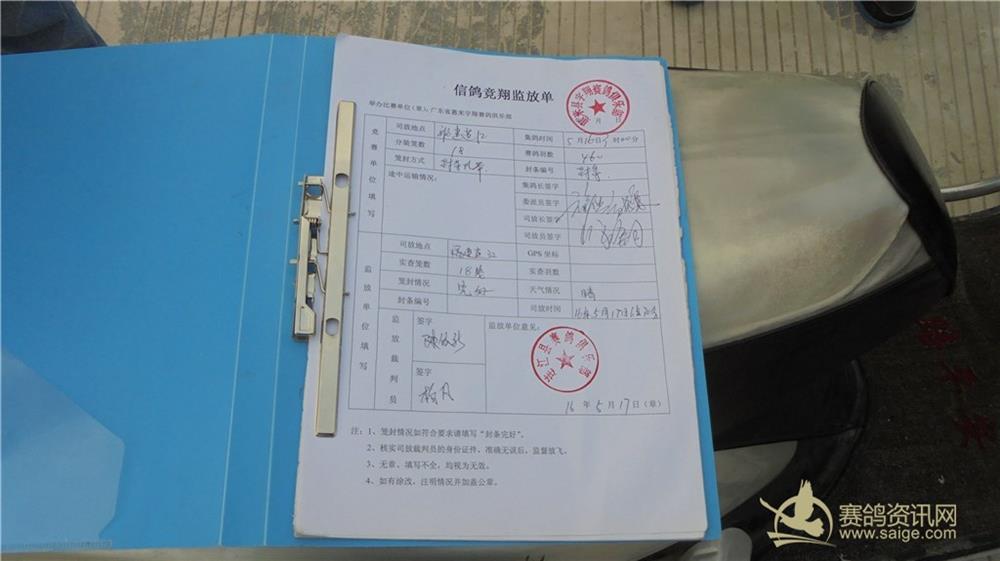 信鸽竞翔监放单
举办比赛单位(章):广东省惠来宇翔赛鸽俱乐部
惠来县宇翔赛鸽俱乐部
竞赛单位填写
司放地点 集鸽时间 5月16日
分装笼数 18 赛鸽羽数 460
笼封方式 封条编号
途中运输情况: 集鸽长签字
委派员签字
司放长签字
司放员签字
监放单位填写
司放地点 GPS坐标
实查笼数 18笼 实查羽数
笼封情况 完好 天气情况 晴
封条编号 司放时间 16年5月17日
监放裁判员
签字
签字
监放单位意见:
县赛鸽俱乐部
16年5月17日(章)
注:1、笼封情况如符合要求请填写“封条完好”。
2、核实司放裁判员的身份证件,准确无误后,监督放飞。
3、无章、填写不全,均视为无效。
4、如有涂改,注明情况并加盖公章。
赛鸽资讯网
www.saige.com